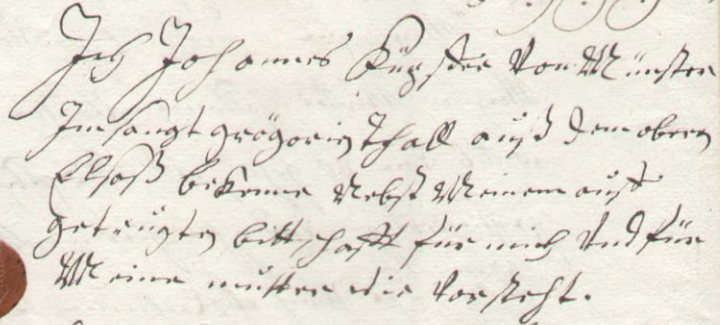 Ich Johannes Küester Von Münster
Im sangt grögorien Thall auß dem obern
Elsaß bekenne Nebst Meinem auff
getrugten bittschafft für mich Und für
Meine mutter wie Vorsteht.